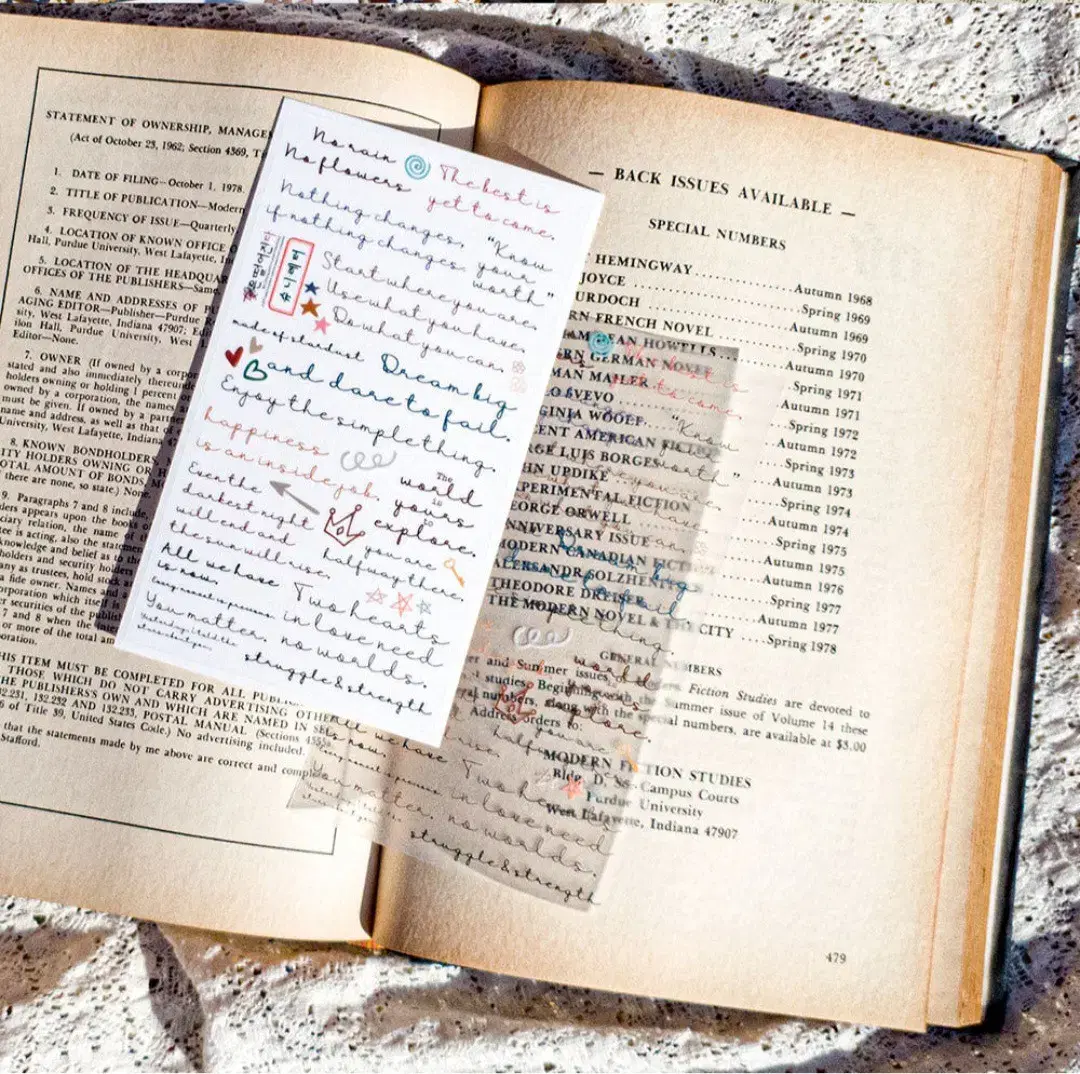 STATEMENT OF OWNERSHIP, MANAGE
(Act of October 23, 1962; Section 4369, T
1. DATE OF FILING—October 1, 1978.
2. TITLE OF PUBLICATION—Modern
3. FREQUENCY OF ISSUE—Quarterly
4. LOCATION OF KNOWN OFFICE O
Hall, Purdue University, West Lafayette, In
5. LOCATION OF THE HEADQUAR
OFFICES OF THE PUBLISHERS—Same.
6. NAME AND ADDRESSES OF PU
AGING EDITOR—Publisher—Purdue
sity, West Lafayette, Indiana 47907; Ed
tion Hall, Purdue University, West
Editor—None.
7. OWNER (If owned by a corpor
stated and also immediately thereunde
holders owning or holding 1 percent o
owned by a corporation, the names
must be given. If owned by a partn
name and address, as well as that o
University, West Lafayette, Indiana 4
8. KNOWN BONDHOLDERS,
ITY HOLDERS OWNING OR H
OTAL AMOUNT OF BONDS, M
there are none, so state.) None.
9. Paragraphs 7 and 8 include,
ders appears upon the books o
ciary relation, the name of th
ee is acting, also the statemen
knowledge and belief as to the
holders and security holders
any as trustees, hold stock a
a fide owner. Names and a
orporation which itself is
r securities of the publish
7 and 8 when the in
or more of the total am
oration.
HIS ITEM MUST BE COMPLETED FOR ALL PUBLI
THOSE WHICH DO NOT CARRY ADVERTISING OTHER
THE PUBLISHER'S OWN AND WHICH ARE NAMED IN SE
132.231, 132.232 AND 132.233, POSTAL MANUAL (Sections 4355
6 of Title 39, United States Code.) No advertising included.
that the statements made by me above are correct and comple
Stafford.
No rain
No flowers
The best is
yet to come.
Nothing changes,
if nothing changes.
"Know
your
worth"
Start where you are.
Use what you have.
Do what you can.
made of stardust
Dream big
and dare to fail.
Enjoy the simple thing.
happiness
is an inside job.
The
world
is
yours
to
explore.
Even the
darkest night
will end and
the sun will rise.
you are
halfway there.
All we have
is now.
Two hearts
in love need
no worlds.
You matter.
struggle & strength
— BACK ISSUES AVAILABLE —
SPECIAL NUMBERS
HEMINGWAY Autumn 1968
JOYCE Spring 1969
URDOCH Autumn 1969
RN FRENCH NOVEL Spring 1970
AN HOWELLS Autumn 1970
RN GERMAN NOVEL Spring 1971
MAN MAILER Autumn 1971
O SVEVO Spring 1972
GINIA WOOLF Autumn 1972
ENT AMERICAN FICTION Spring 1973
RGE LUIS BORGES Autumn 1973
HN UPDIKE Spring 1974
PERIMENTAL FICTION Autumn 1974
EORGE ORWELL Spring 1975
NNIVERSARY ISSUE Autumn 1975
MODERN CANADIAN FICTION Autumn 1976
ALEKSANDR SOLZHENITSYN Spring 1977
THEODORE DREISER Autumn 1977
THE MODERN NOVEL & THE CITY Spring 1978
GENERAL NUMBERS
er and Summer issues Fiction Studies are devoted to
studies. Beginning with the Summer issue of Volume 14 these
numbers, along with the special numbers, are available at $3.00
Address orders to:
MODERN FICTION STUDIES
Bldg. D, Campus Courts
Purdue University
West Lafayette, Indiana 47907
479